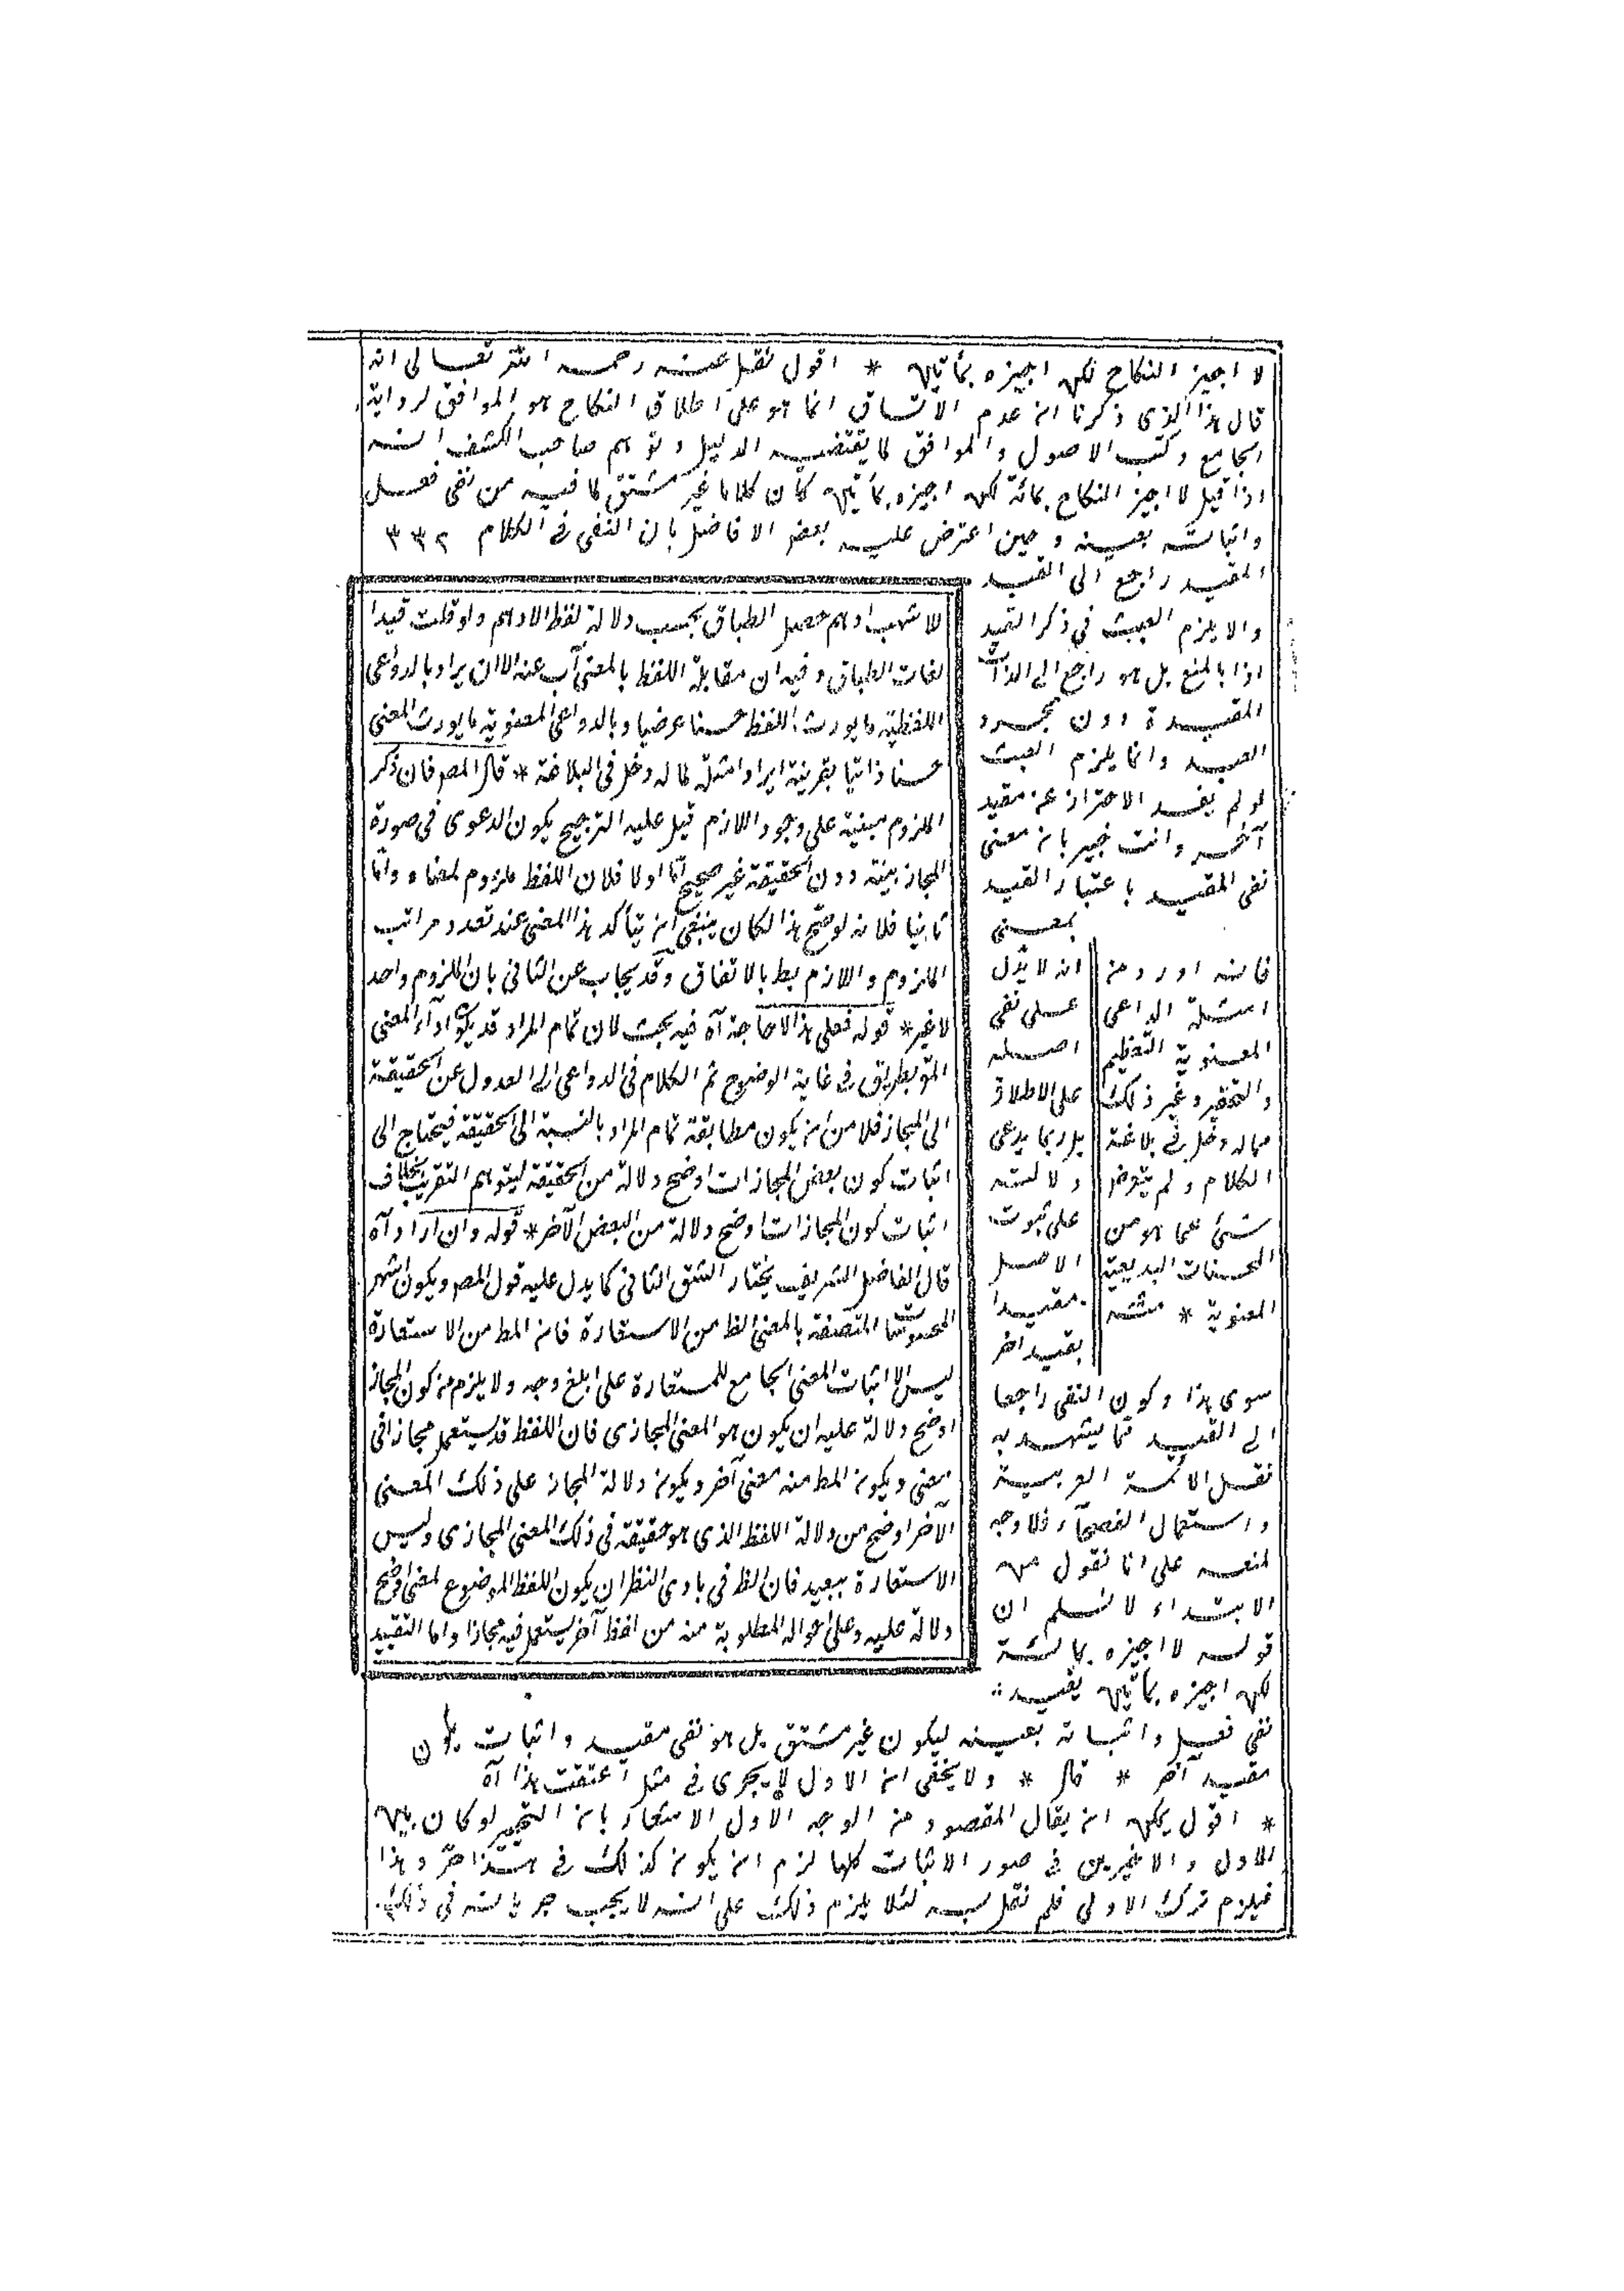 لا اجيز النكاح لكن اجيزه بمأتين * اقول نقل عنه رحمه الله تعالى انه
قال هذا الذى ذكرنا ان عدم الاتساق انما هو على اطلاق النكاح هو الموافق لرواية
الجامع وكتب الاصول والموافق لما يقتضيه الدليل وتوهم صاحب الكشف انه
اذا قيل لا اجيز النكاح بمائة لكن اجيزه بمأتين كان كلاما غير متسق لما فيه من نفى فعل
واثباته بعينه وحين اعترض عليه بعض الافاضل بان النفى فى الكلام ٣٣٢
المقيد راجع الى القيد
والا يلزم العبث في ذكر القيد
اذا بالمنع بل هو راجع الى الذات
المقيدة دون مجرد
القيد وانما يلزم العبث
لو لم يفد الاحتراز عن مقيد
آخر وانت خبير بان معنى
نفى المقيد باعتبار القيد
بمعنى
انه لا يدل
على نفى
اصله
على الاطلاق
بل ربما يدعى
دلالته
على ثبوت
الاصل
مقيدا
بقيد اخر
سوى هذا وكون النفى راجعا
الى القيد مما يشهد به
نقل الائمة العربية
واستعمال الفصحآء فلا وجه
لمنعه على انا نقول من
الابتداء لا نسلم ان
قوله لا اجيزه بمائة
لكن اجيزه بمأتين يفيد
نفى فعل واثباته بعينه ليكون غير متسق بل هو نفى مقيد واثبات
مقيد آخر * قال * ولا يخفى ان الاول لا يجرى فى مثل اعتقت هذا آه
* اقول يمكن ان يقال المقصود من الوجه الاول الاشعار بان التخيير لو كان بين
الاول والاخيرين فى صور الاثبات كلها لزم ان يكون كذلك فى هذا حر وهذا
فيلزم ترك الاولى فلم نقل به لئلا يلزم ذلك على انه لا يجب جريانه فى ذلك
فانه اورد من
امثلة الداعى
المعنوية التعظيم
والتحقير وغير ذلك
مما له دخل فى بلاغة
الكلام ولم يتعرض
شئ مما هو من
المحسنات البديعية
المعنوية * مثنه
للاشهب ادهم حصل الطباق بحسب دلالة لفظ الادهم ولو قلت قيدا
لفات الطباق وفيه ان مقابلة اللفظ بالمعنى آب عنه الا ان يراد بالدواعى
اللفظية ما يورث اللفظ حسنا عرضيا وبالدواعى المعنوية ما يورث المعنى
حسنا ذاتيا بقرينة ايراد امثلة لما له دخل فى البلاغة * قال المص فان ذكر
الملزوم مبنية على وجود اللازم قيل عليه الترجيح بكون الدعوى فى صورة
المجاز بينة دون الحقيقة غير صحيح اما اولا فلان اللفظ ملزوم لمعناه واما
ثانيا فلانه لو صح هذا لكان ينبغى ان يتأكد هذا المعنى عند تعدد مراتب
الملزوم واللازم بط بالاتفاق وقد يجاب عن الثانى بان الملزوم واحد
لا غير * قوله فعلى هذا لا حاجة آه فيه بحث لان تمام المراد قد يكون ادآء المعنى
بطريق فى غاية الوضوح ثم الكلام فى الدواعى الى العدول عن الحقيقة
الى المجاز فلا من ان يكون مطابقة تمام المراد بالنسبة الى الحقيقة فيحتاج الى
اثبات كون بعض المجازات اوضح دلالة من الحقيقة ليتوهم التقريب بخلاف
اثبات كون المجازات اوضح دلالة من البعض الآخر * قوله وان اراد آه
قال الفاضل الشريف يختار الشق الثانى كما يدل عليه قول المص ويكون اشهر
المحسوسات المتصفة بالمعنى الظ من الاستعارة فان المط من الاستعارة
ليس الا اثبات المعنى الجامع للمستعارة على ابلغ وجه ولا يلزم من كون المجاز
اوضح دلالة عليه ان يكون هو المعنى المجازى فان اللفظ قد يستعمل مجازا فى
معنى ويكون المط منه معنى آخر ويكون دلالة المجاز على ذلك المعنى
الآخر اوضح من دلالة اللفظ الذى هو حقيقة فى ذلك المعنى المجازى وليس
الاستعارة ببعيد فان الظ فى بادى النظر ان يكون اللفظ الموضوع لمعنى اوضح
دلالة عليه وعلى احواله المطلوبة منه من لفظ آخر يستعمل فيه مجازا واما التقييد